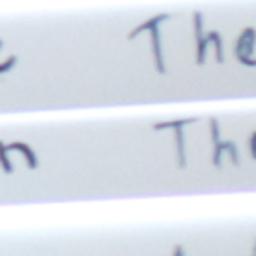 The
n The